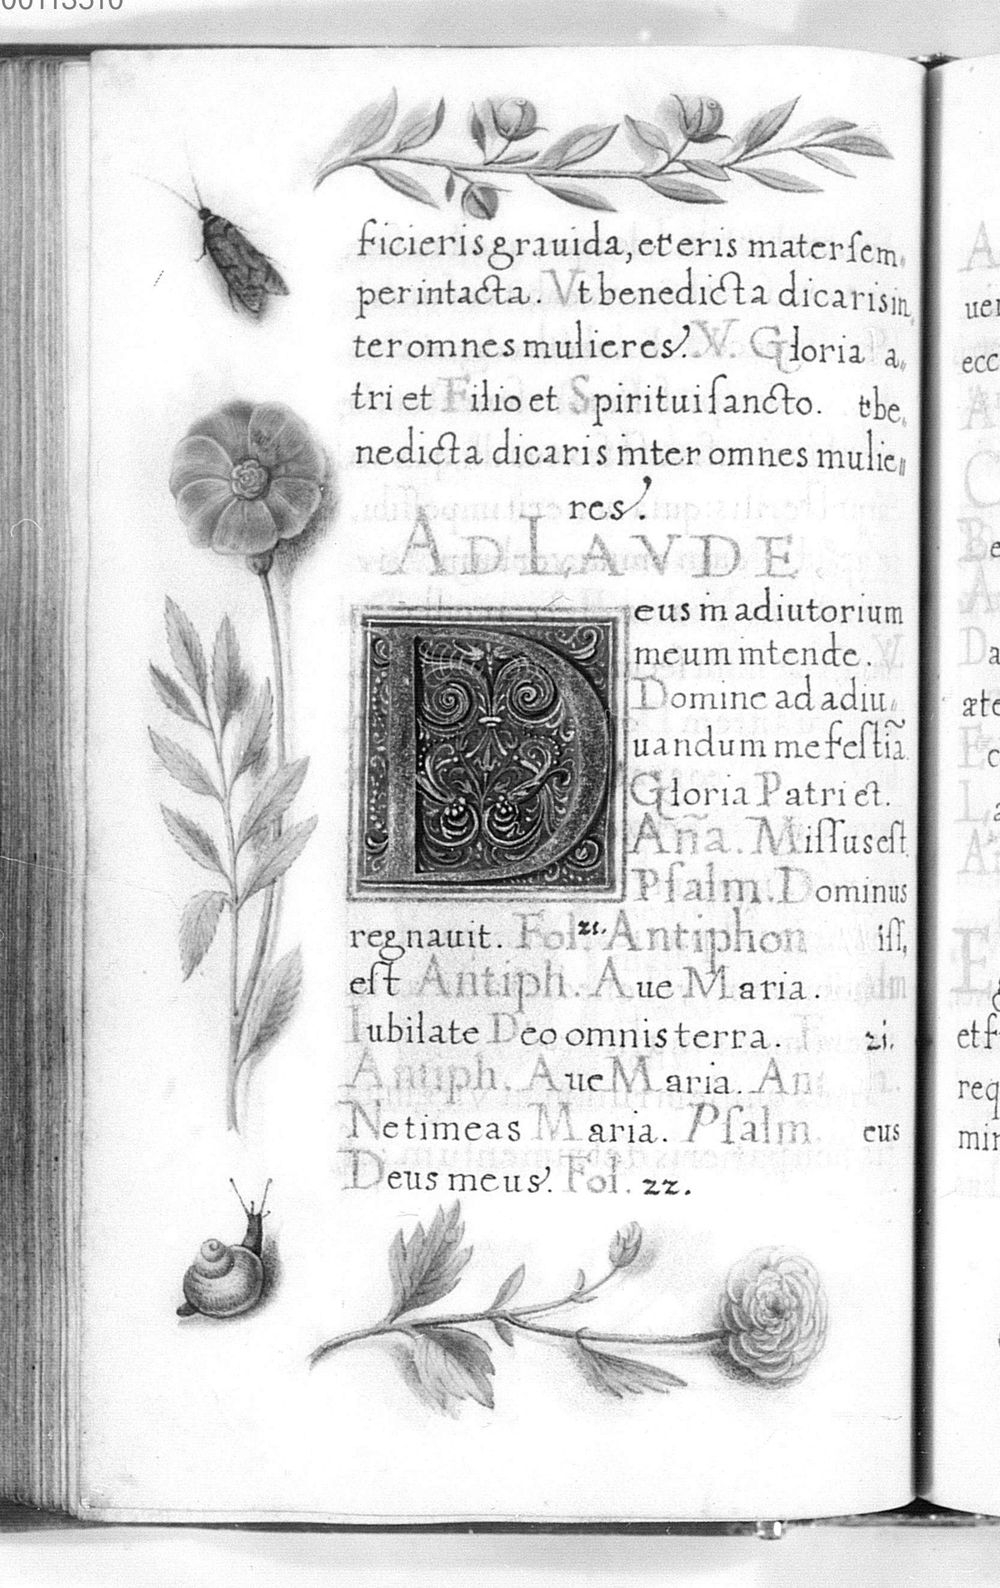 00113510
ficieris grauida, et eris mater ſem,
per intacta. Vt benedicta dicaris in,
ter omnes mulieres. V. Gloria a,
tri et Filio et Spiritui ſancto. tbe,
nedicta dicaris inter omnes mulie,,
res.
AD LAVDE
Deus in adiutorium
meum intende.
Domine ad adiu,
uandum me feſtiã
Gloria Patri et.
Aña. Miſſus eſt
Pſalm. Dominus
regnauit. Fol. 21. Antiphon iſſ,
eſt Antiph. Aue Maria.
Iubilate Deo omnis terra. 21.
Antiph. Aue Maria. An
Ne timeas Maria. Pſalm eus
Deus meus. Fol. 22.
A
uei
ecc
A
C
Be
A
Da
æte
E c
La
A
E
g
et f
req
min